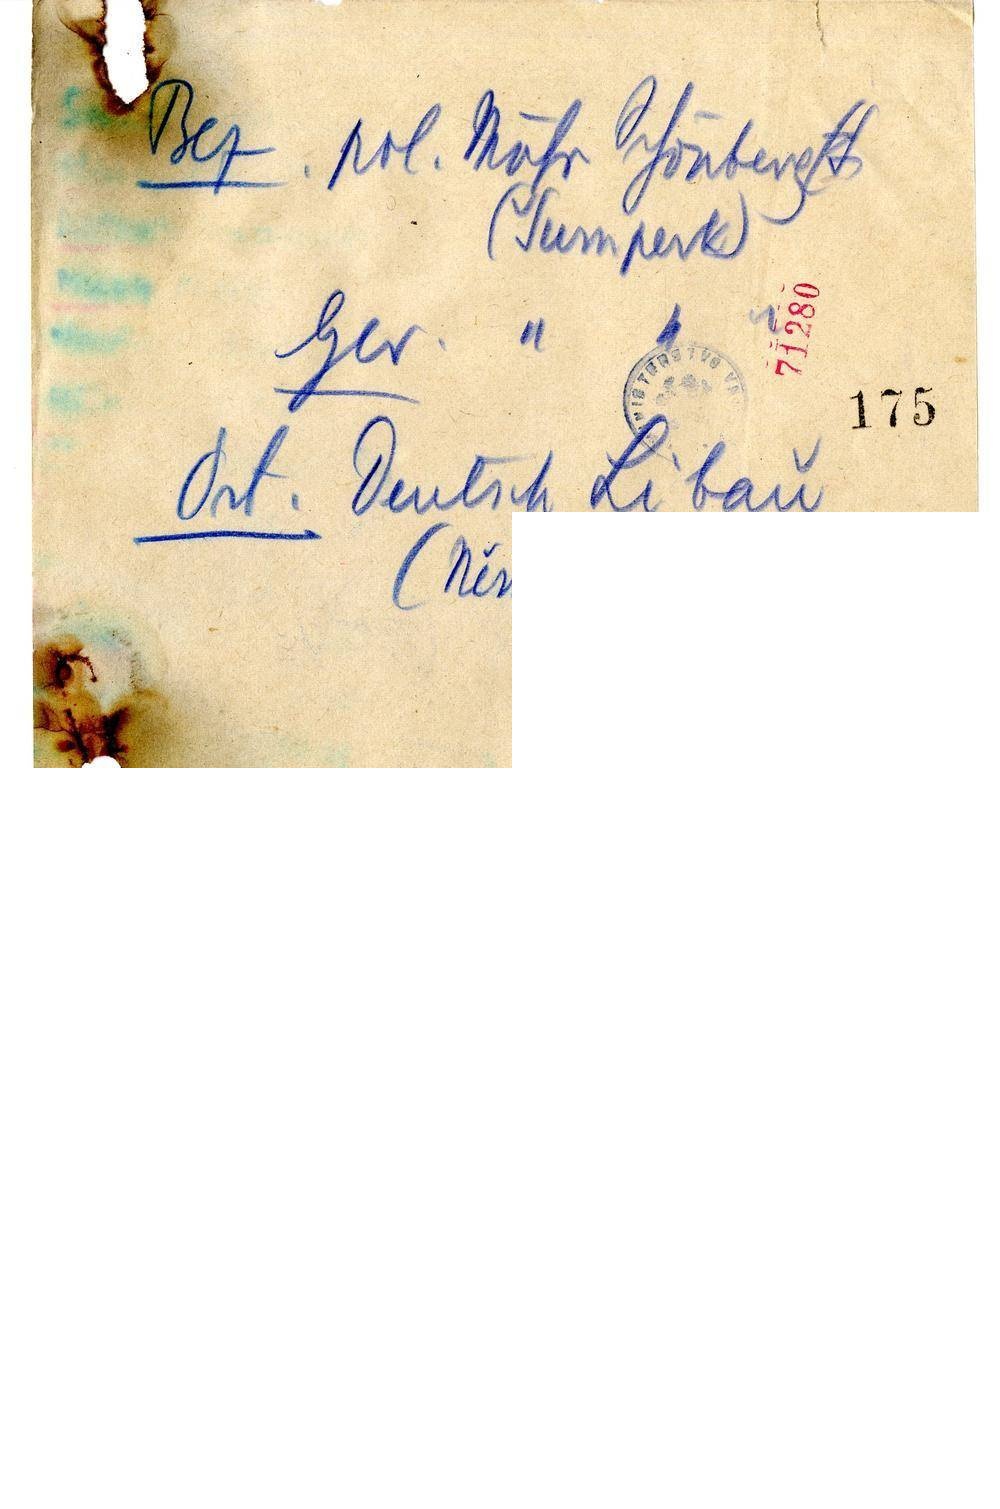 Bez. pol. Mähr Schönberg
(Šumperk)
Ger. " " "
71280
MINISTERSTVO VN
175
Ort. Deutsch Libau
(Něm